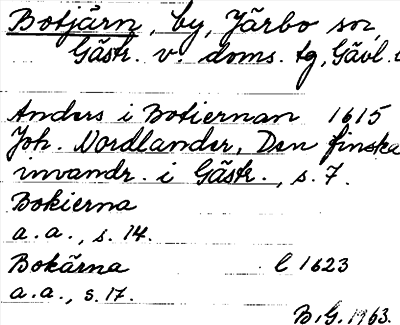 Botjärn, by, Järbo sn,
Gästr. v. doms. tg, Gävl.
Anders i Botiernan 1615
Joh. Nordlander, Den finska
invandr. i Gästr., s. 7.
Bokierna
a. a., s. 14.
Bokärna l 1623
a. a., s. 17.
B. G. 1963.